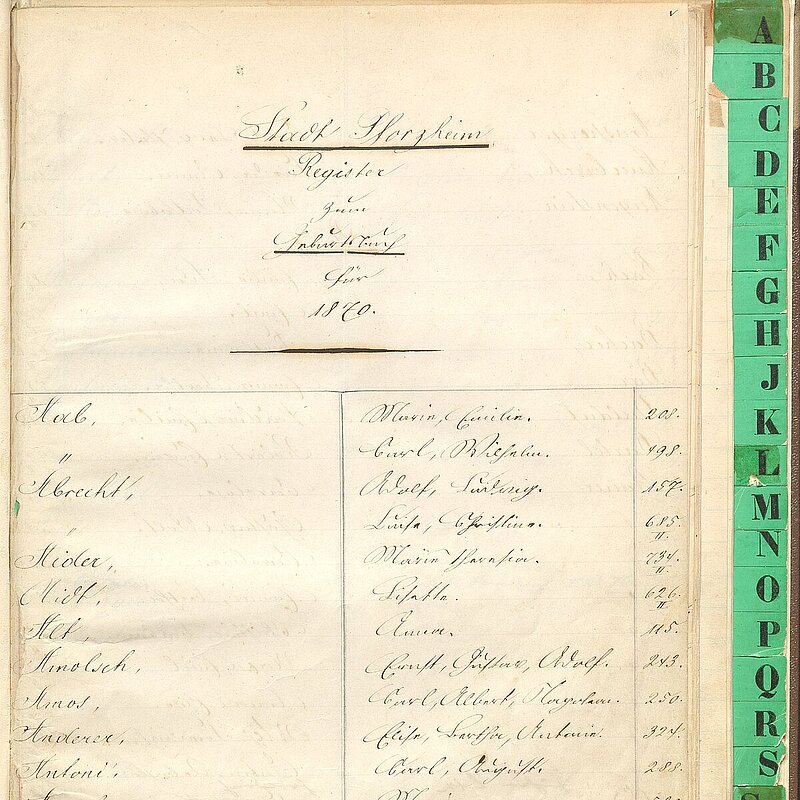 Stadt Pforzheim
Register
zum
Geburtsbuch
für
1870.
Aab, Marie, Emilie. 208.
" Carl, Wilhelm. 198.
Albrecht, Adolf, Ludwig. 157.
" Luise, Christine. 685. II.
Marie Theresia. 734. II.
Lisette. 626. II.
Alt, Anna. 115.
Amolsch, Ernst, Gustav, Adolf. 243.
Amos, Carl, Albert, Napoleon. 250.
Anderer, Elise, Bertha, Antonie. 324.
Antoni, Carl, August. 288.
A
B
C
D
E
F
G
H
J
K
L
M
N
O
P
Q
R
S